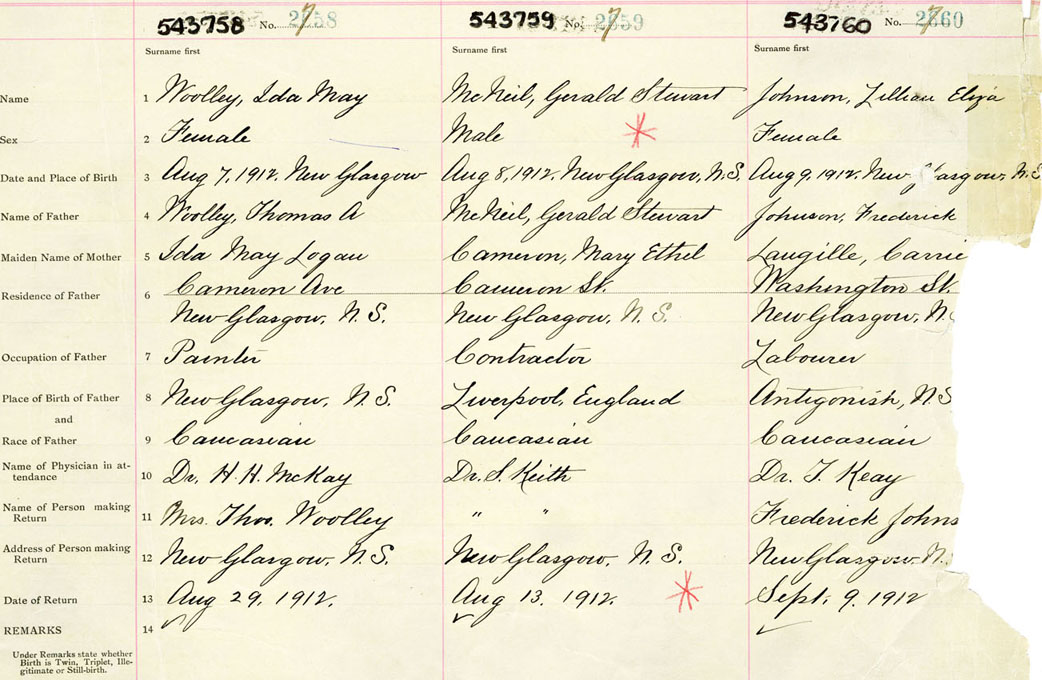 543758 No. 2758 543759 No. 2759 543760 No. 2760
Surname first Surname first Surname first
Name 1 Woolley, Ida May McNeil, Gerald Stewart Johnson, Lillian Eliza
Sex 2 Female Male Female
Date and Place of Birth 3 Aug 7, 1912. New Glasgow Aug 8, 1912. New Glasgow, N.S. Aug 9. 1912. New Glasgow, N.S.
Name of Father 4 Woolley, Thomas A McNeil, Gerald Stewart Johnson, Frederick
Maiden Name of Mother 5 Ida May Logan Cameron, Mary Ethel Langille, Carrie
Residence of Father 6 Cameron Ave Cameron St. Washington St.
New Glasgow, N.S. New Glasgow, N.S. New Glasgow, N.
Occupation of Father 7 Painter Contractor Labourer
Place of Birth of Father 8 New Glasgow, N.S. Liverpool, England Antigonish, N.S
and
Race of Father 9 Caucasian Caucasian Caucasian
Name of Physician in at-
tendance 10 Dr. H. H. McKay Dr. S. Keith Dr. T. Keay
Name of Person making
Return 11 Mrs. Thos. Woolley " " Frederick Johns
Address of Person making
Return 12 New Glasgow, N.S. New Glasgow, N.S. New Glasgow, N.
Date of Return 13 Aug 29, 1912. Aug 13. 1912. Sept. 9. 1912
REMARKS 14
Under Remarks state whether
Birth is Twin, Triplet, Ille-
gitimate or Still-birth.